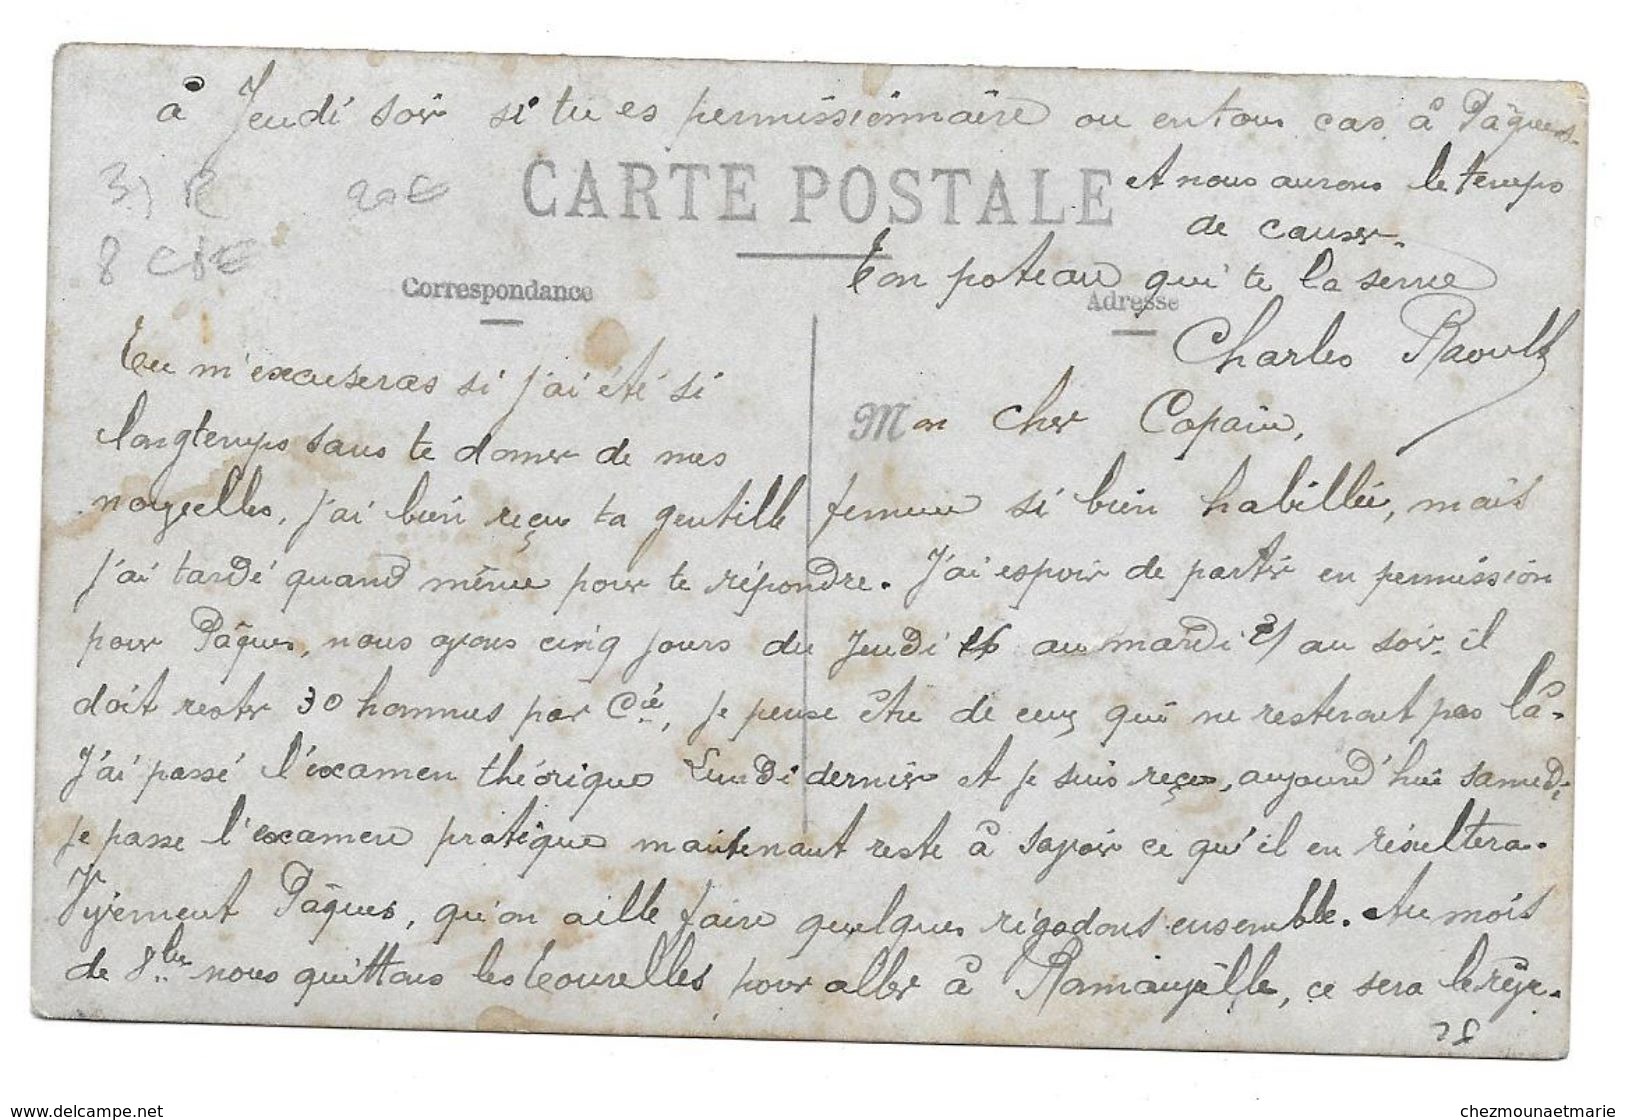 à Jeudi soir si tu es permissionnaire ou en tous cas à Pâques
et nous aurons le temps
de causer.
CARTE POSTALE
20€
8 Cie
Ton poteau qui te la serre
Correspondance
Adresse
Charles Raoult
Mon cher Copain,
Tu m'excuseras si j'ai été si
longtemps sans te donner de mes
nouvelles, j'ai bien reçu ta gentille femme si bien habillée, mais
j'ai tardé quand même pour te répondre. J'ai espoir de partir en permission
pour Pâques, nous avons cinq jours du Jeudi 16 au mardi 21 au soir. il
doit rester 30 hommes par Cie, je pense être de ceux qui ne resteront pas là.
J'ai passé l'examen théorique Lundi dernier et je suis reçu, aujourd'hui samedi
je passe l'examen pratique maintenant reste à savoir ce qu'il en résultera.
Vivement Pâques, qu'on aille faire quelques rigodons ensemble. Au mois
de 8bre nous quittons les Tourelles pour aller à Romainville, ce sera le rêve.
chezmounaetmarie
www.delcampe.net